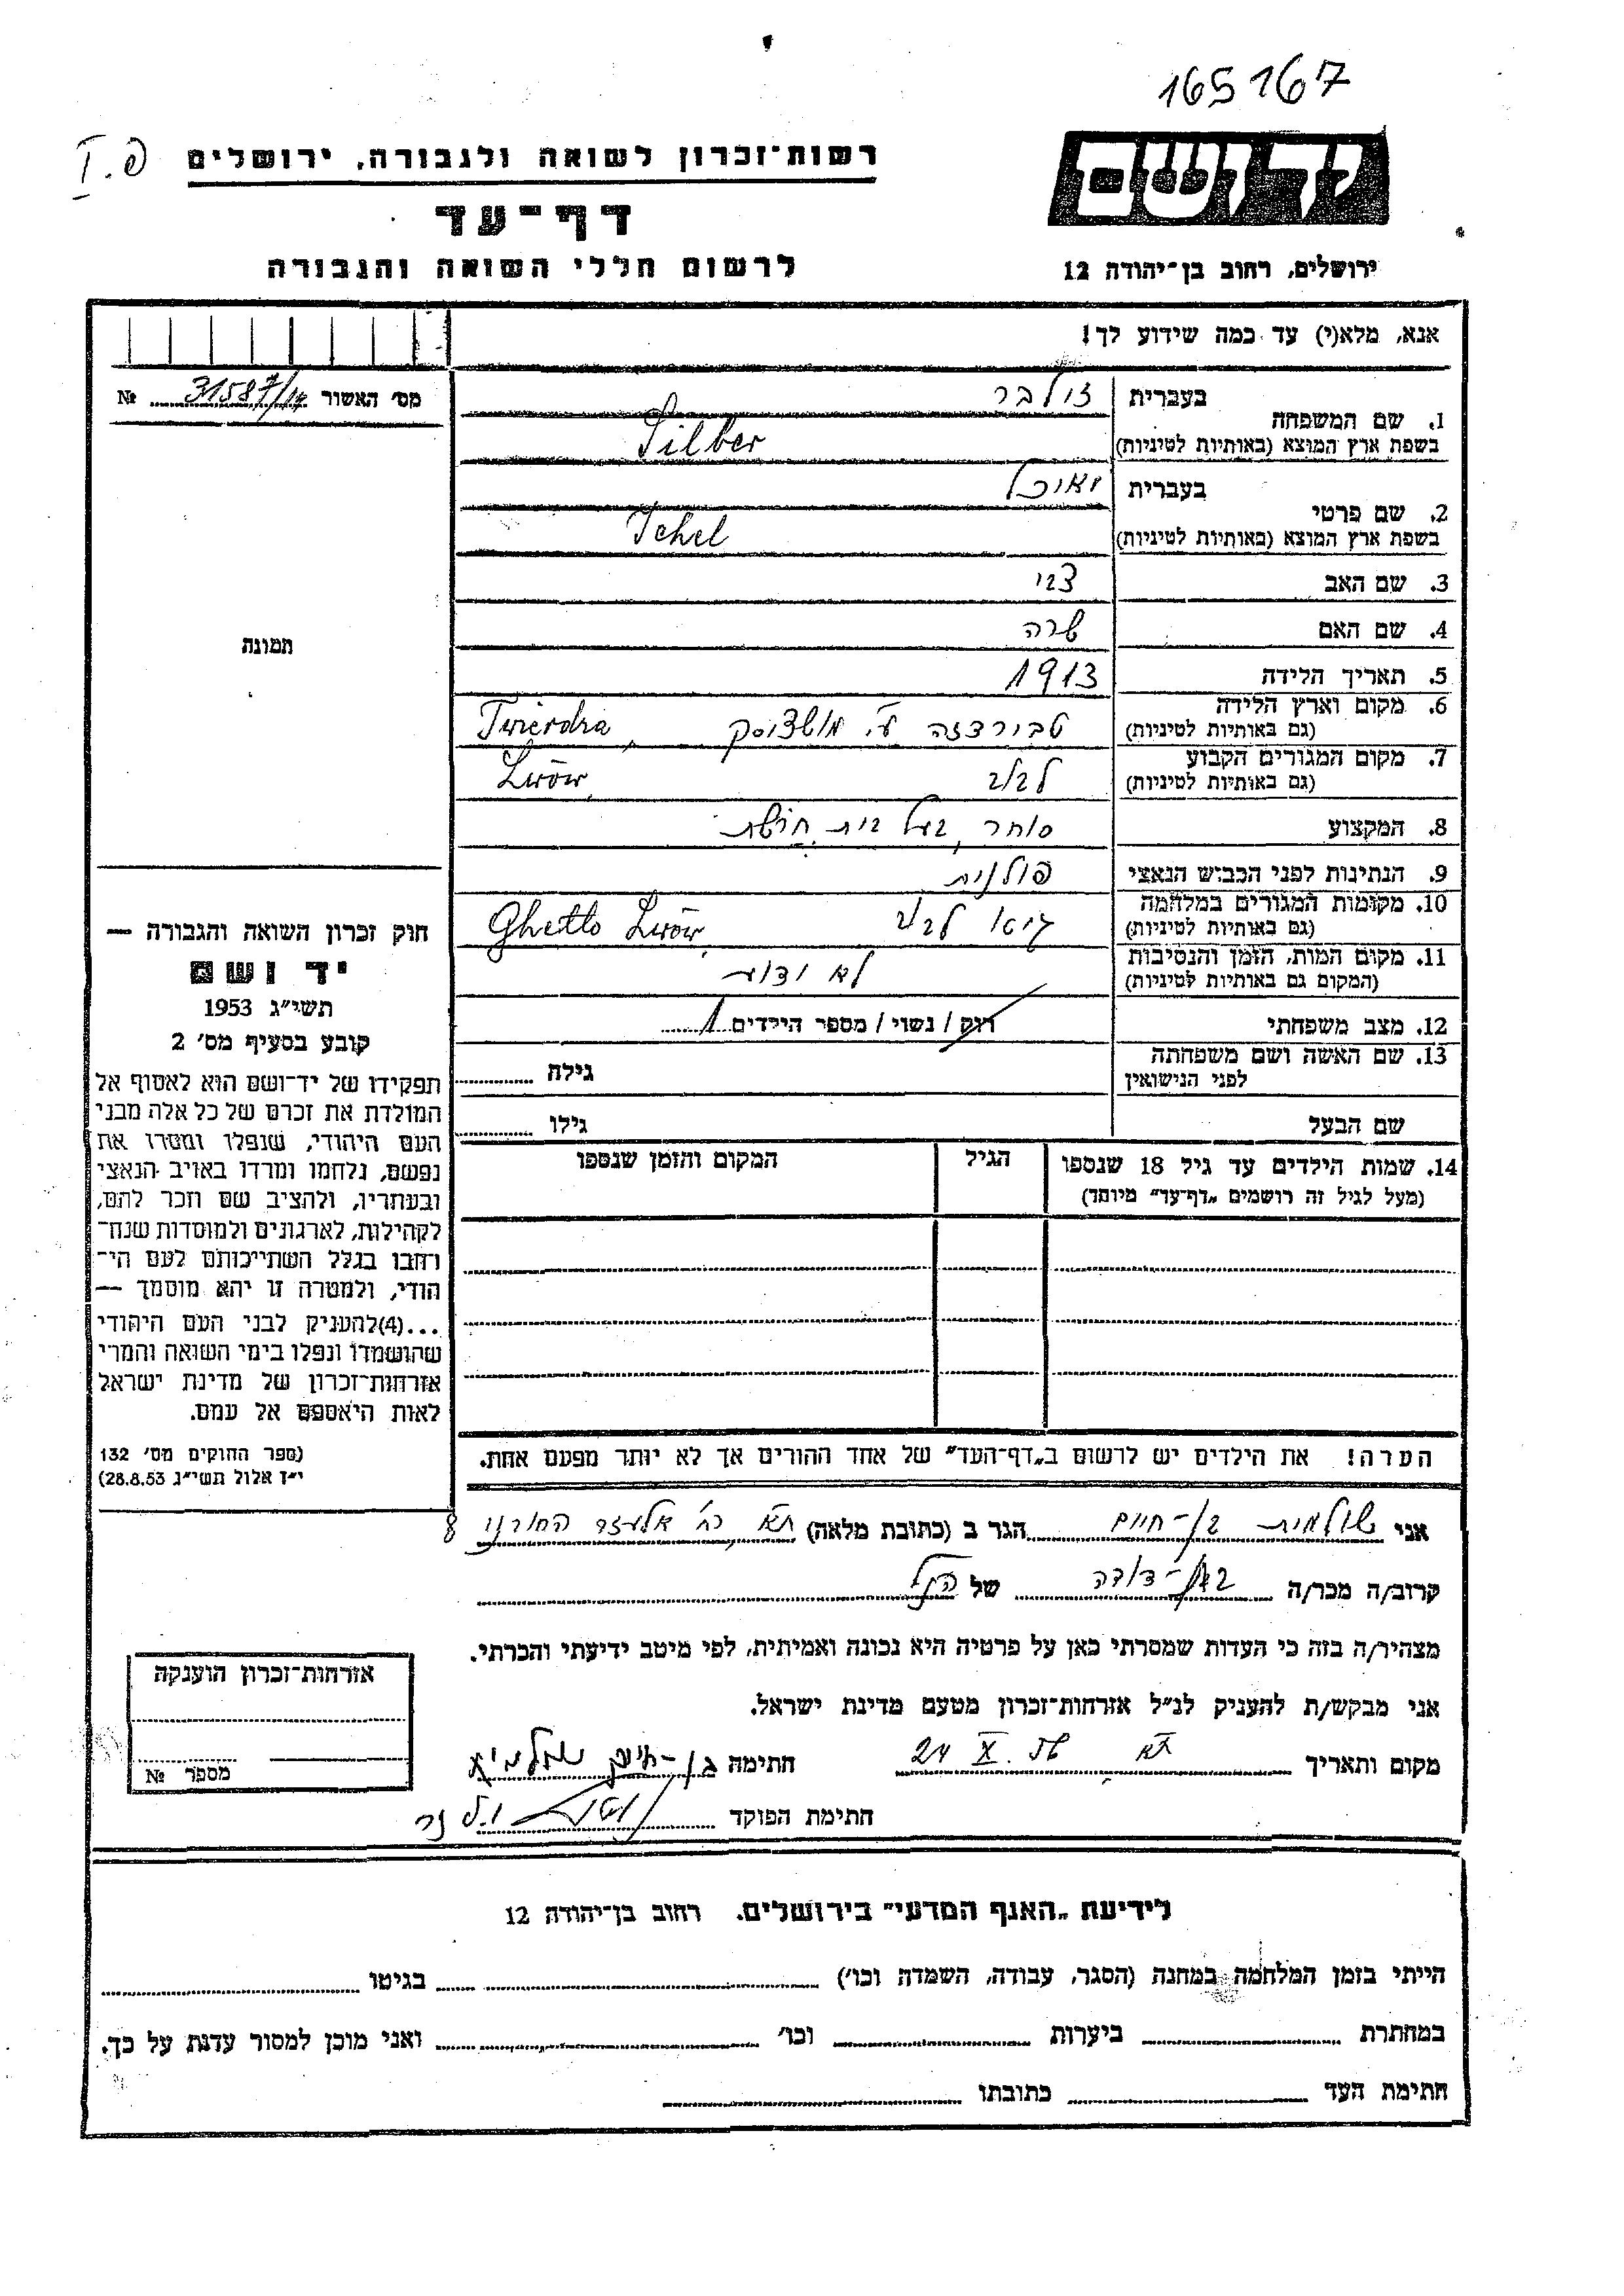 165167
רשות־זכרון לשואה ולגבורה, ירושלים
דף־עד
לרשום חללי השואה והגבורה
יד ושם
ירושלים, רחוב בן־יהודה 12
אנא, מלא(י) עד כמה שידוע לך!
מס׳ האשור № 31587/14
1. שם המשפחה
בעברית זילבר
בשפת ארץ המוצא (באותיות לטיניות) Silber
2. שם פרטי
בעברית
בשפת ארץ המוצא (באותיות לטיניות) Jehel
3. שם האב צבי
4. שם האם שרה
5. תאריך הלידה 1913
6. מקום וארץ הלידה
(גם באותיות לטיניות) Twierdza
7. מקום המגורים הקבוע
(גם באותיות לטיניות) לבוב Lwów
8. המקצוע סוחר, בעל בית חרשת
9. הנתינות לפני הכבוש הנאצי פולנית
10. מקומות המגורים במלחמה
(גם באותיות לטיניות) גיטו לבוב Ghetto Lwów
11. מקום המות, הזמן והנסיבות
(המקום גם באותיות לטיניות) לא ידוע
12. מצב משפחתי רוק / נשוי / מספר הילדים 1
13. שם האשה ושם משפחתה
לפני הנישואין גילה
שם הבעל גילו
14. שמות הילדים עד גיל 18 שנספו
(מעל לגיל זה רושמים „דף־עד״ מיוחד)
הגיל
המקום והזמן שנספו
הערה! את הילדים יש לרשום ב„דף־העד״ של אחד ההורים אך לא יותר מפעם אחת.
תמונה
חוק זכרון השואה והגבורה —
יד ושם
תשי״ג 1953
קובע בסעיף מס׳ 2
תפקידו של יד־ושם הוא לאסוף אל
המולדת את זכרם של כל אלה מבני
העם היהודי, שנפלו ומסרו את
נפשם, נלחמו ומרדו באויב הנאצי
ובעוזריו, ולהציב שם וזכר להם,
לקהילות, לארגונים ולמוסדות שנח־
רחבו בגלל השתייכותם לעם הי־
הודי, ולמטרה זו יהא מוסמך —
...(4)להעניק לבני העם היהודי
שהושמדו ונפלו בימי השואה והמרי
אזרחות־זכרון של מדינת ישראל
לאות היאספם אל עמם.
(ספר החוקים מס׳ 132
י״ז אלול תשי״ג 28.8.53)
אני שולמית בן-חיים הגר ב (כתובת מלאה) תא רח׳ אלעזר החורני 8
קרוב/ה מכר/ה בת-דודה של הנ״ל
מצהיר/ה בזה כי העדות שמסרתי כאן על פרטיה היא נכונה ואמיתית, לפי מיטב ידיעתי והכרתי.
אני מבקש/ת להעניק לנ״ל אזרחות־זכרון מטעם מדינת ישראל.
מקום ותאריך תא 24 X. חתימה בן-חיים שולמית
חתימת הפוקד
אזרחות־זכרון הוענקה
מספר №
לידיעת „האגף המדעי״ בירושלים, רחוב בן־יהודה 12
הייתי בזמן המלחמה במחנה (הסגר, עבודה, השמדה וכו׳) בגיטו
במחתרת ביערות וכו׳ ואני מוכן למסור עדות על כך.
חתימת העד כתובתו